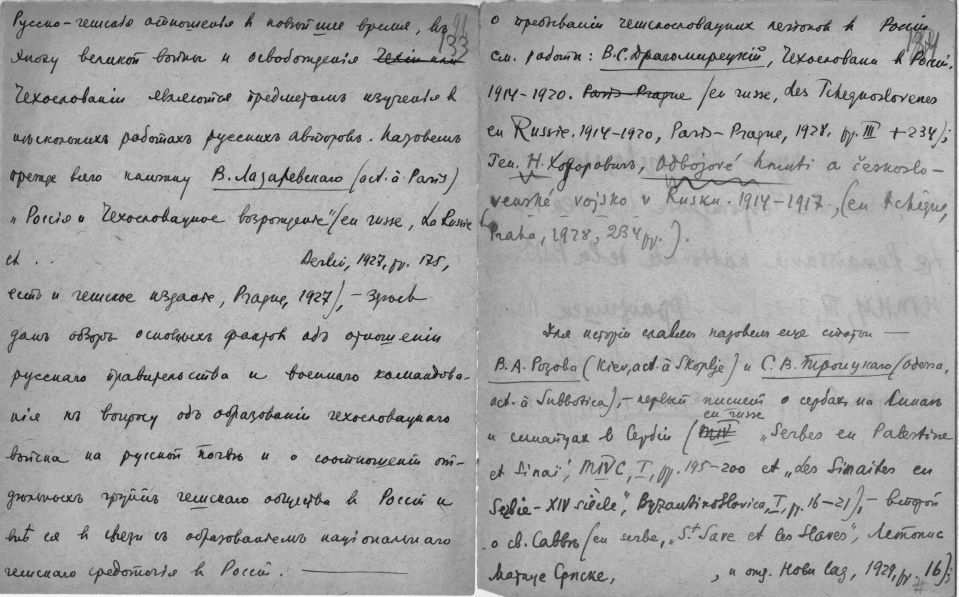 Русско-чешскія отношенія въ новѣйшее время, въ
эпоху великой войны и освобожденія Чехіи или
Чехословакіи являются предметомъ изученія въ
нѣсколькихъ работахъ русскихъ авторовъ. Назовемъ
прежде всего книжку В. Лазаревскаго (act. à Paris)
„Россія и Чехословацкое возрожденіе" (en russe, La Russie
et . . Berlin, 1927, pp. 175,
есть и чешское изданіе, Prague, 1927), – здѣсь
данъ обзоръ основныхъ фактовъ объ отношеніи
русскаго правительства и военнаго командова-
нія къ вопросу объ образованіи чехословацкаго
войска на русской почвѣ и о соотношеніи от-
дѣльныхъ группъ чешскаго общества въ Россіи и
внѣ ея въ связи съ образованіемъ національнаго
чешскаго средоточія въ Россіи.
133
о пребываніи чешскословацкихъ легіоновъ въ Россіи
134
см. работы: В.С. Драгомирецкій, Чехословаки въ Россіи,
1914-1920. Paris-Prague (en russe, des Tchequoslovenes
en Russie. 1914-1920, Paris-Prague, 1928. pp. III + 234);
Ген. Н. Ходоровичъ, Odbojové hnutí a českoslo-
venské vojsko v Rusku. 1914-1917, (en tchèque,
Praha, 1928, 234 pp.).
Для исторіи славянъ назовемъ еще статьи —
В.А. Розова (Kiev, act. à Skoplje) и С.В. Троицкаго (Odessa,
act. à Subbotica), – первый пишетъ о сербахъ на Синаѣ
en russe
и синаитахъ въ Сербіи ( „Serbes en Palestine
et Sinaï", MIVC, I, pp. 195-200 et „des Sinaïtes en
Serbie – XIV siècle", Byzantinoslavica, I, pp. 16-21), – второй
о св. Саввѣ (en serbe, „St Save et les Slaves", Летопис
Матице Српске, , и отд. Нови Сад, 1929, pp. 16);